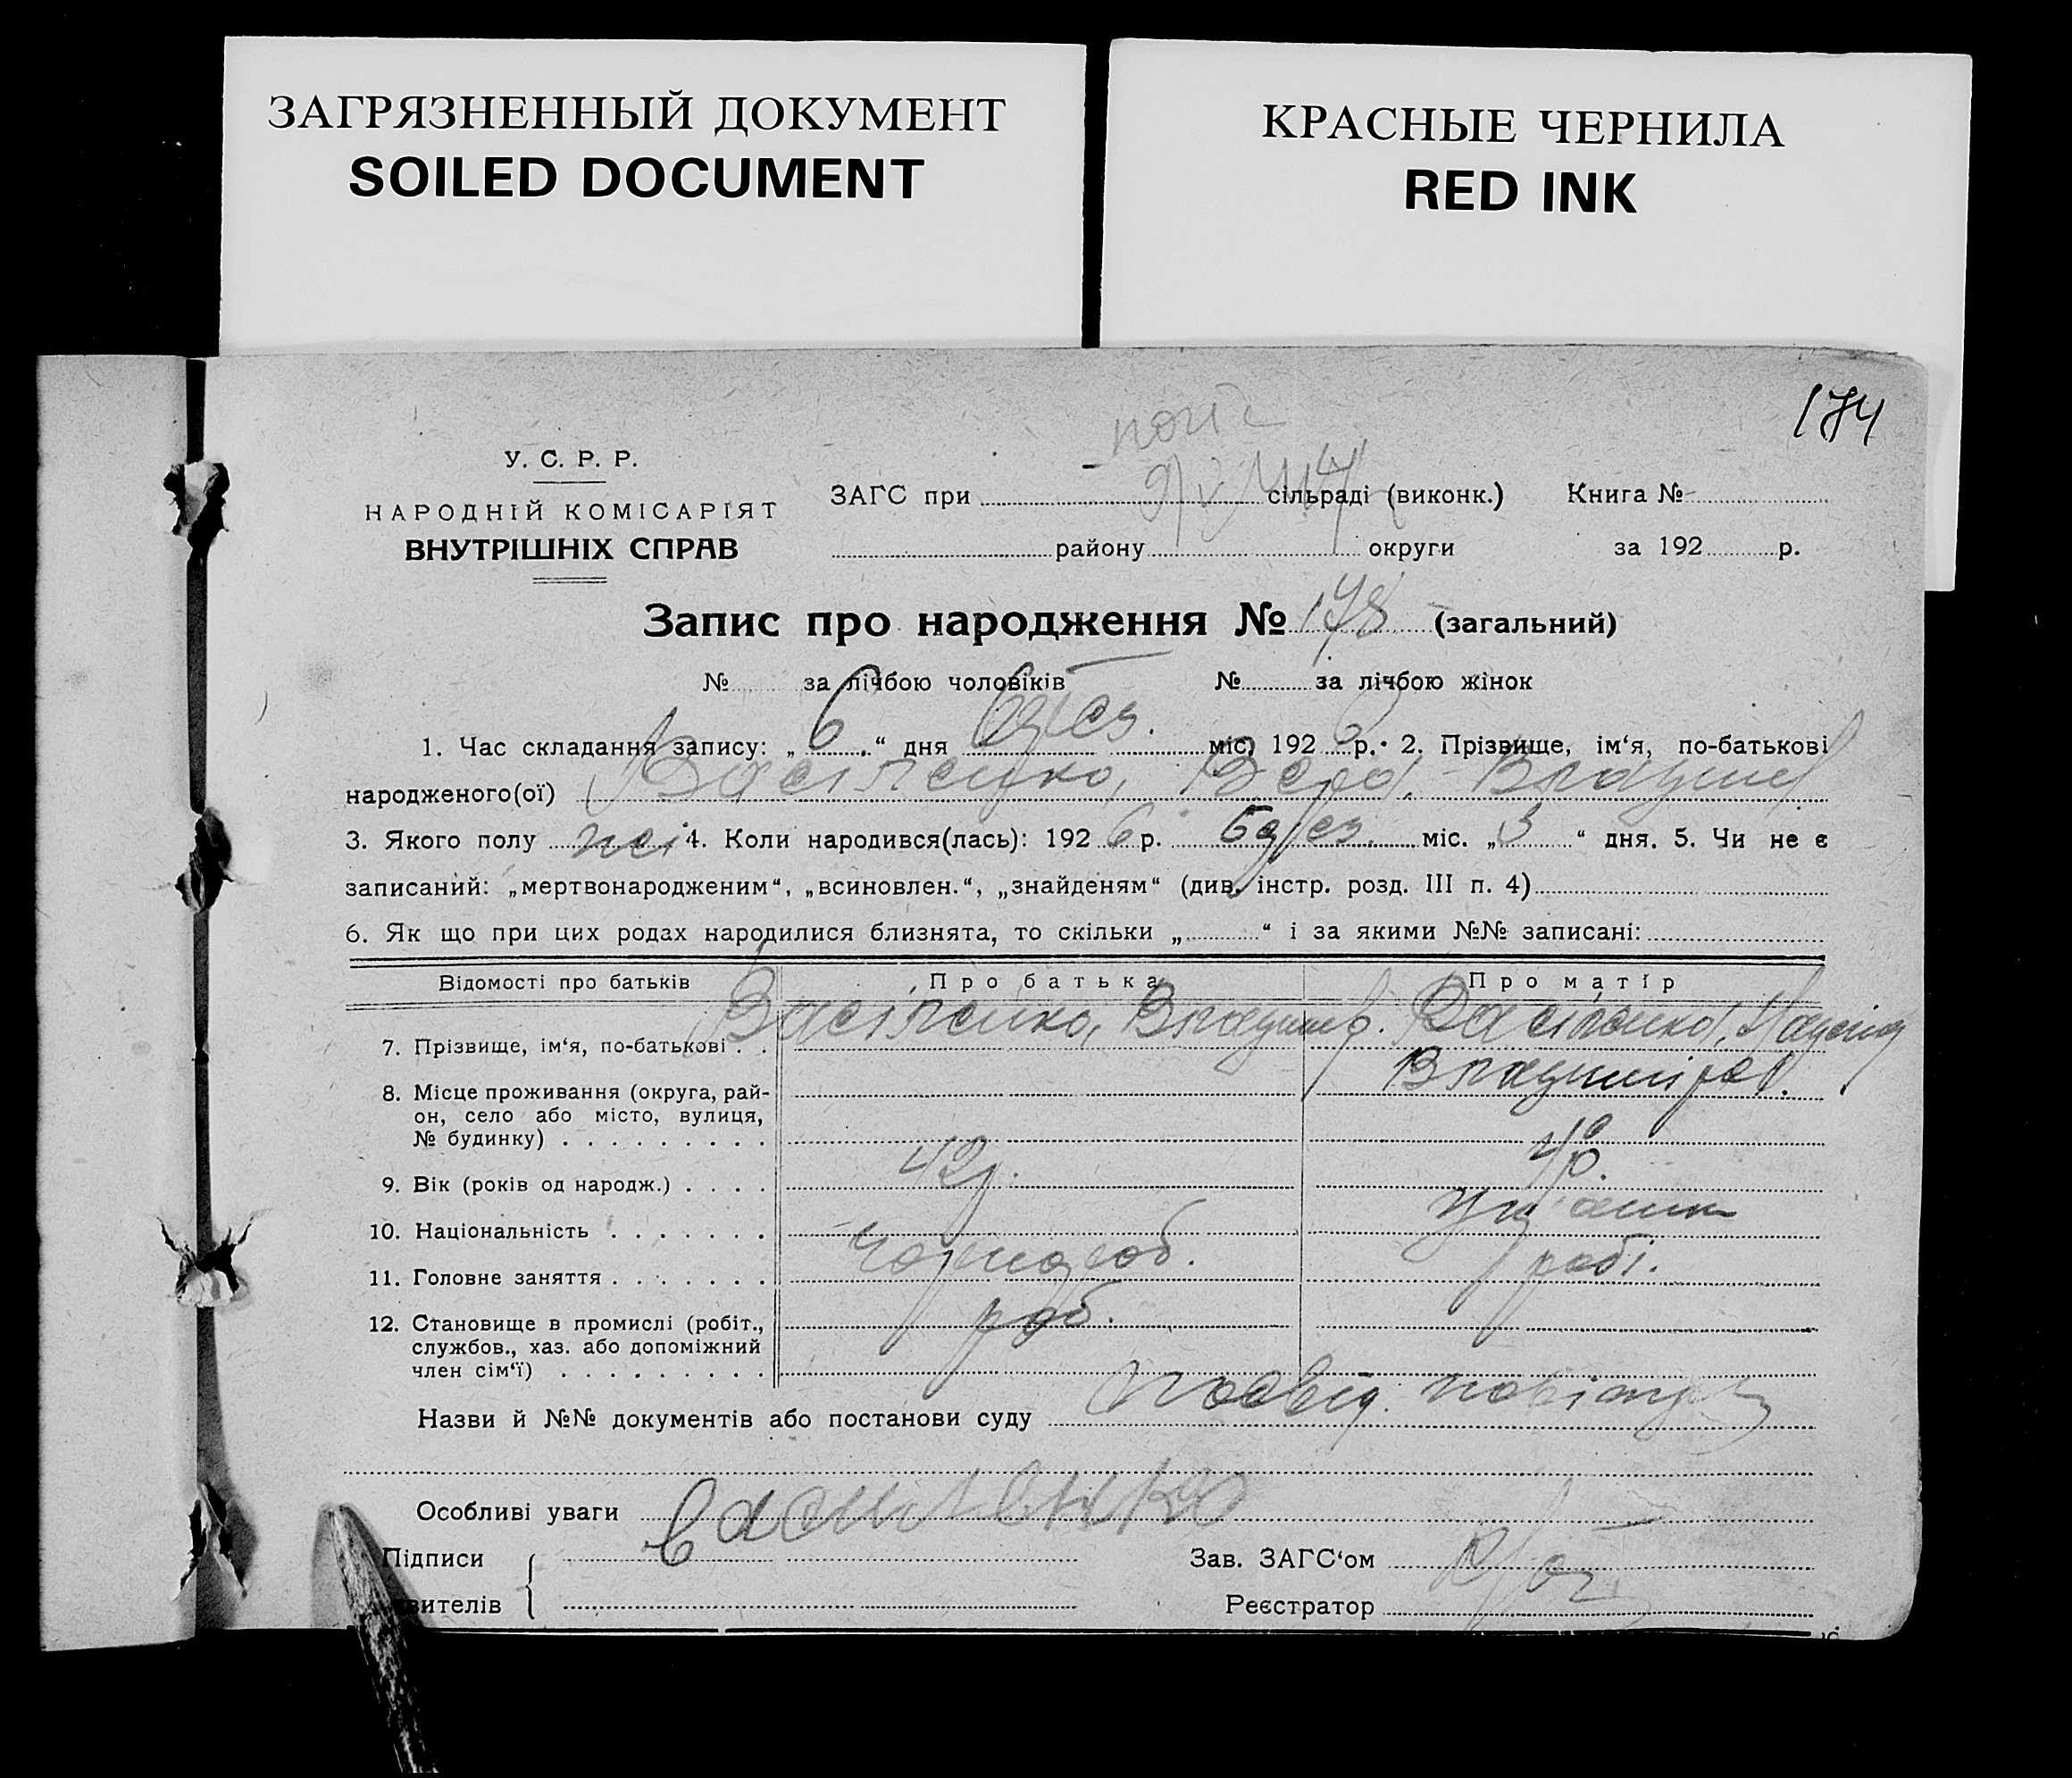 ЗАГРЯЗНЕННЫЙ ДОКУМЕНТ
SOILED DOCUMENT
КРАСНЫЕ ЧЕРНИЛА
RED INK
174
У. С. Р. Р.
НАРОДНІЙ КОМІСАРІЯТ
ВНУТРІШНІХ СПРАВ
ЗАГС при сільраді (виконк.) Книга №
району округи за 192 р.
Запис про народження № 178 (загальний)
№ за лічбою чоловіків № за лічбою жінок
1. Час складання запису: „ 6 “ дня міс, 192 р. 2. Прізвище, ім‘я, по-батькові
народженого(ої) Васіленко, Вера,
3. Якого полу 4. Коли народився(лась): 192 6 р. міс. „ 3 “ дня. 5. Чи не є
записаний: „мертвонародженим“, „всиновлен.“, „знайденям“ (див. інстр. розд. III п. 4)
6. Як що при цих родах народилися близнята, то скільки „ “ і за якими №№ записані:
Відомості про батьків Про батька Про матір
7. Прізвище, ім‘я, по-батькові . . Васіленко, Васіленко,
8. Місце проживання (округа, рай-
он, село або місто, вулиця,
№ будинку) . . . . . . . . .
9. Вік (років од народж.) . . . . 42р.
10. Національність . . . . . . .
11. Головне заняття . . . . . . . чорнороб. робі.
12. Становище в промислі (робіт., роб.
службов., хаз. або допоміжний
член сім‘ї) . . . . . . . . .
Назви й №№ документів або постанови суду посвід.
Особливі уваги
Василенко
Підписи Зав. ЗАГС‘ом
вителів Реєстратор